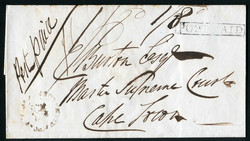 Post Paid
1/8
POST PAID
Burton Esqr
Master Supreme Court
Cape Town